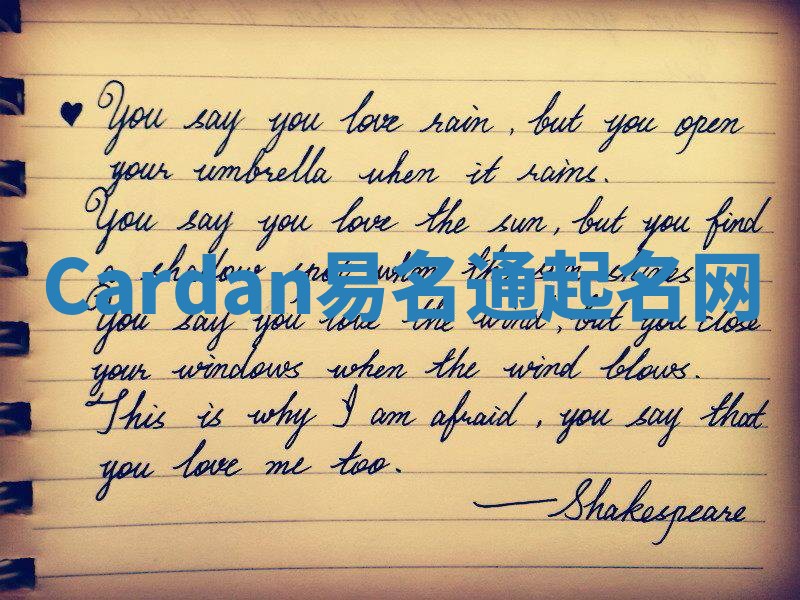 ♥ You say you love rain, but you open
your umbrella when it rains.
You say you love the sun, but you find
a shadow spot when the sun shines
Cardan易名通起名网
You say you love the wind, but you close
your windows when the wind blows.
This is why I am afraid, you say that
you love me too.
—Shakespeare